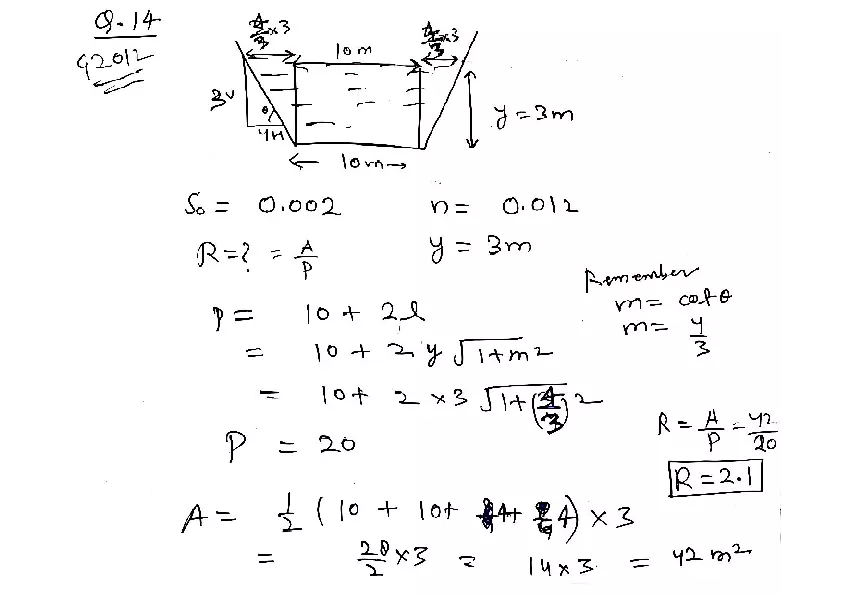 Q.14
G2012
4/3×3
10m
4/3×3
3V
θ
4H
y = 3m
← 10m →
S₀ = 0.002    n = 0.012
R = ? = A/P    y = 3m
Remember
m = cotθ
m = 4/3
P = 10 + 2l
= 10 + 2y√1+m²
= 10 + 2×3√1+(4/3)²
P = 20
R = A/P = 42/20
R = 2.1
A = 1/2 (10 + 10 + 4 + 4) × 3
= 28/2 × 3 = 14×3 = 42 m²